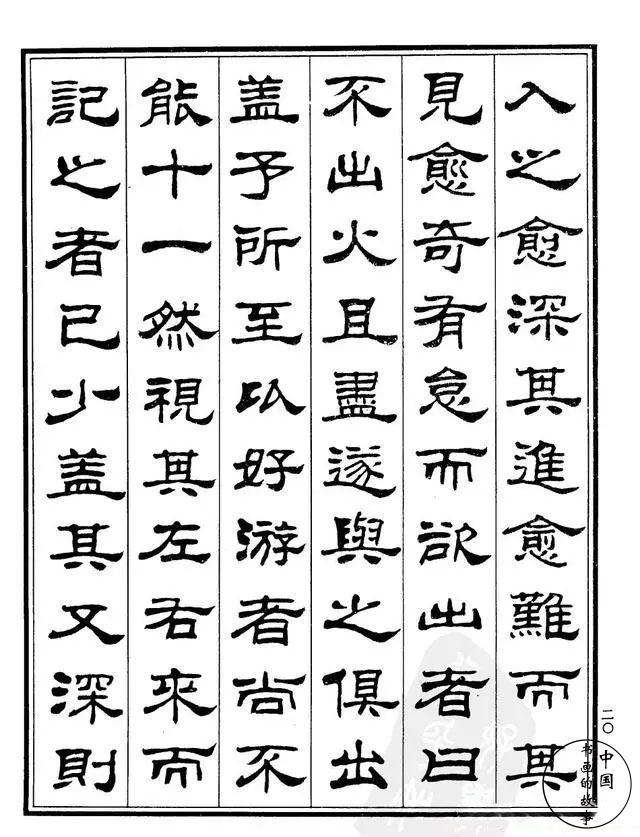 入之愈深其進愈難而其
見愈奇有怠而欲出者曰
不出火且盡遂與之俱出
盖予所至以好游者尚不
能十一然視其左右來而
記之者已少盖其又深則
二〇
中国
书画的故事